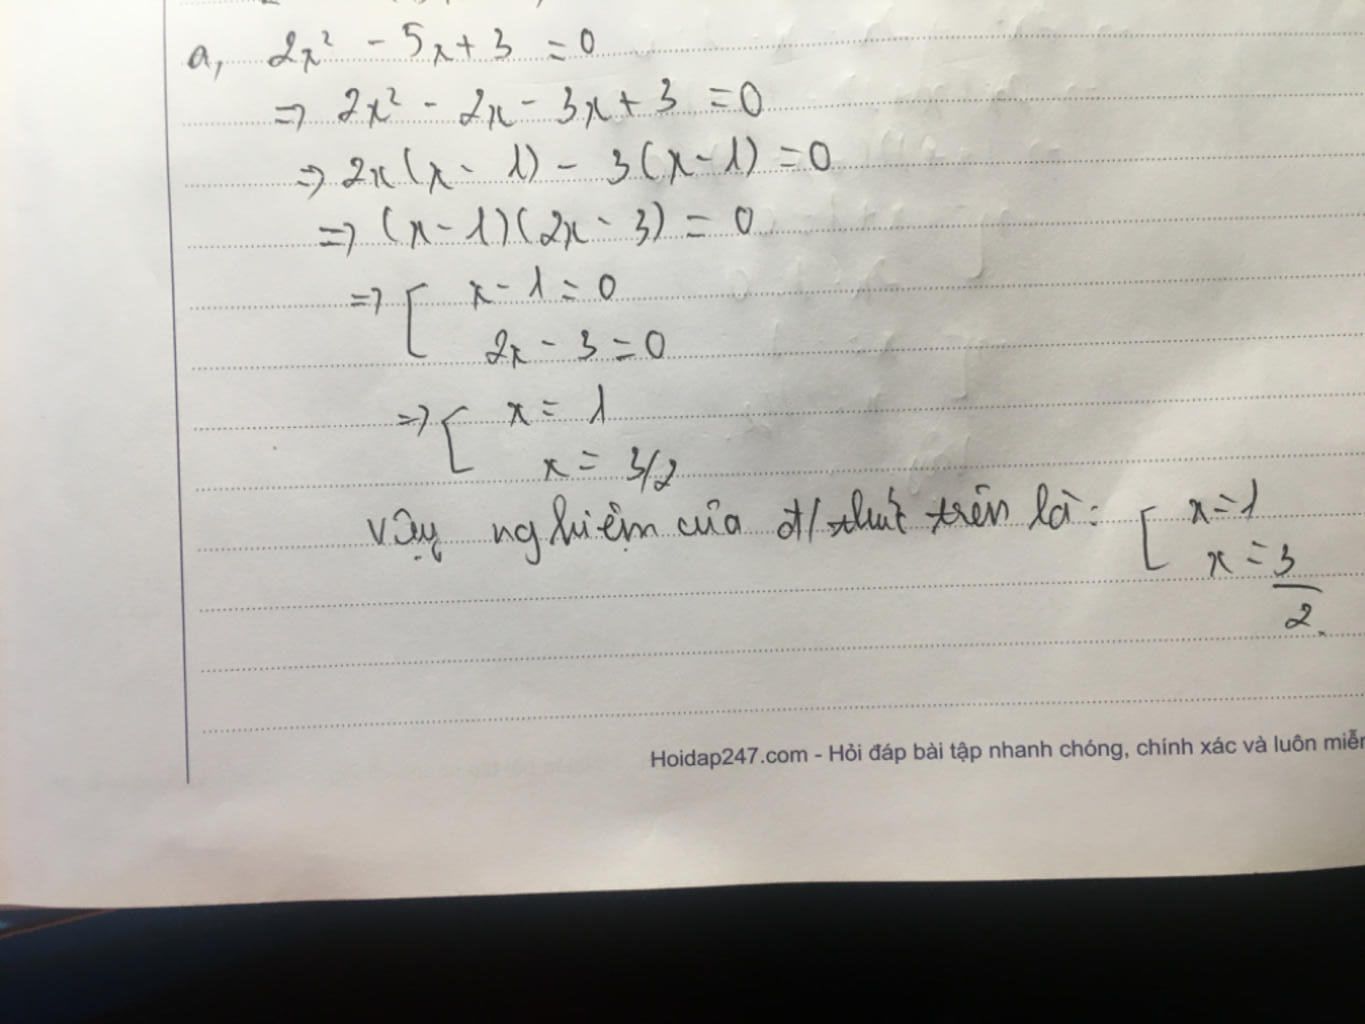 a, 2x² - 5x + 3 = 0
=> 2x² - 2x - 3x + 3 = 0
=> 2x(x - 1) - 3(x - 1) = 0
=> (x - 1)(2x - 3) = 0
=> [ x - 1 = 0
2x - 3 = 0
=> [ x = 1
x = 3/2
Vậy nghiệm của đ/thức trên là: [ x = 1
x = 3/2.
Hoidap247.com - Hỏi đáp bài tập nhanh chóng, chính xác và luôn miễn